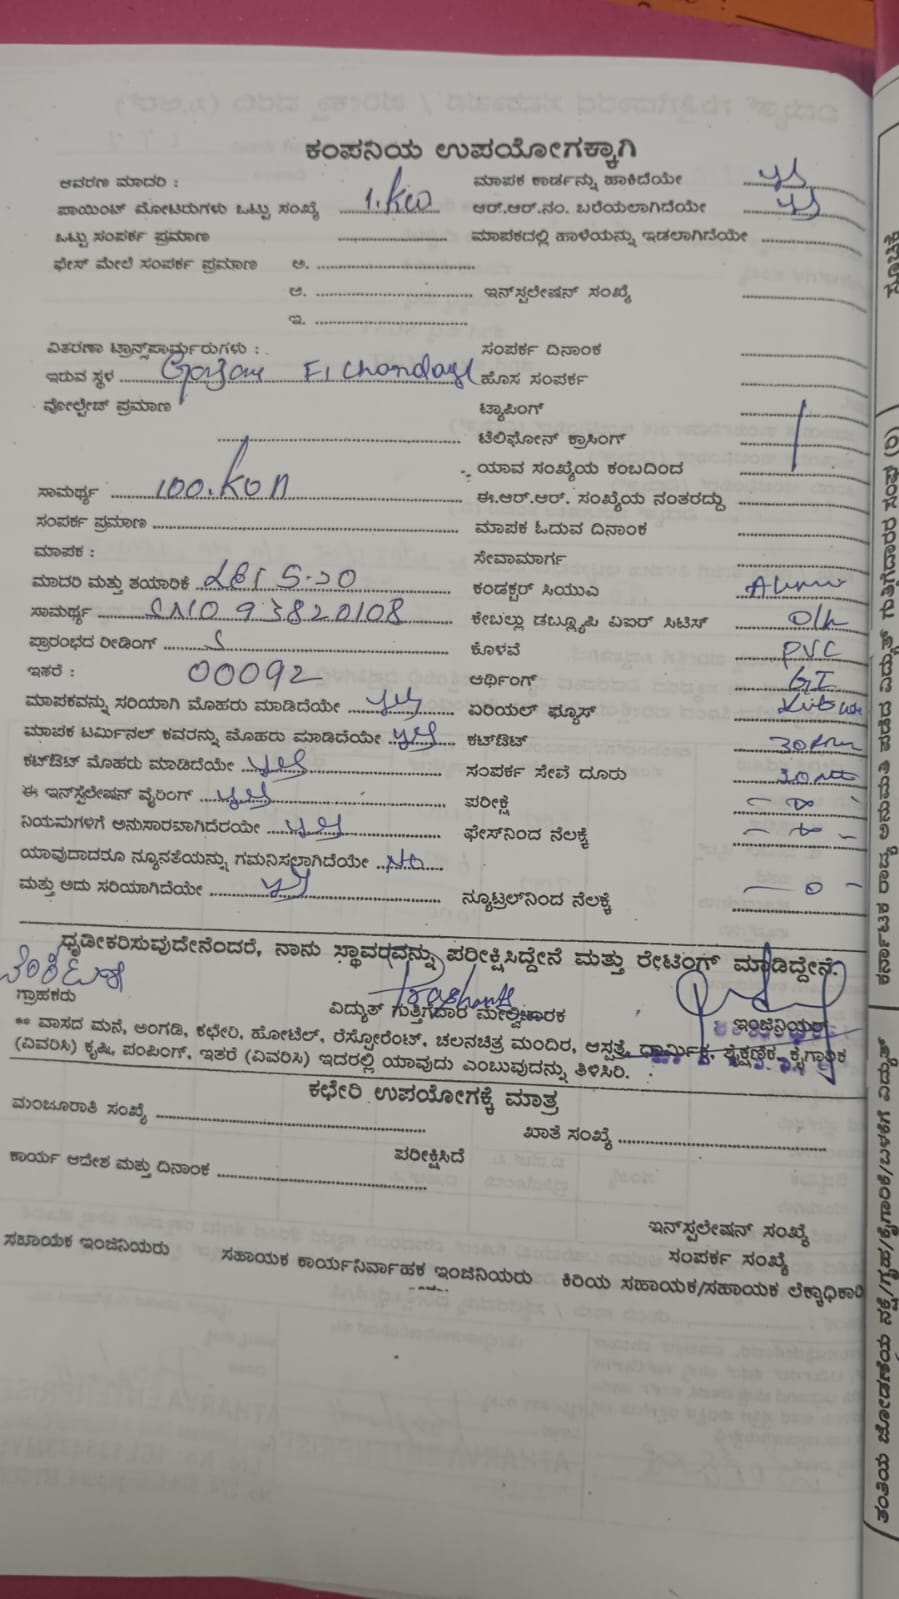 ಕಂಪನಿಯ ಉಪಯೋಗಕ್ಕಾಗಿ
ಆವರಣ ಮಾದರಿ : ಮಾಪಕ ಕಾರ್ಡನ್ನು ಹಾಕಿದೆಯೇ yes
ಪಾಯಿಂಟ್ ಮೋಟರುಗಳು ಒಟ್ಟು ಸಂಖ್ಯೆ 1.kw ಆರ್.ಆರ್.ನಂ. ಬರೆಯಲಾಗಿದೆಯೇ yes
ಒಟ್ಟು ಸಂಪರ್ಕ ಪ್ರಮಾಣ ಮಾಪಕದಲ್ಲಿ ಹಾಳೆಯನ್ನು ಇಡಲಾಗಿದೆಯೇ
ಫೇಸ್ ಮೇಲೆ ಸಂಪರ್ಕ ಪ್ರಮಾಣ ಅ.
ಆ. ಇನ್‌ಸ್ಟಲೇಷನ್ ಸಂಖ್ಯೆ
ಇ.
ವಿತರಣಾ ಟ್ರಾನ್ಸ್‌ಪಾರ್ಮರುಗಳು : ಸಂಪರ್ಕ ದಿನಾಂಕ
ಇರುವ ಸ್ಥಳ F1 ಹೊಸ ಸಂಪರ್ಕ
ವೋಲ್ಟೇಜ್ ಪ್ರಮಾಣ ಟ್ಯಾಪಿಂಗ್
ಟೆಲಿಫೋನ್ ಕ್ರಾಸಿಂಗ್
ಯಾವ ಸಂಖ್ಯೆಯ ಕಂಬದಿಂದ
ಸಾಮರ್ಥ್ಯ ಈ.ಆರ್.ಆರ್. ಸಂಖ್ಯೆಯ ನಂತರದ್ದು
ಸಂಪರ್ಕ ಪ್ರಮಾಣ ಮಾಪಕ ಓದುವ ದಿನಾಂಕ
ಮಾಪಕ : ಸೇವಾಮಾರ್ಗ
ಮಾದರಿ ಮತ್ತು ತಯಾರಿಕೆ ಕಂಡಕ್ಟರ್ ಸಿಯುಎ
ಸಾಮರ್ಥ್ಯ ಕೇಬಲ್ಲು ಡಬ್ಲ್ಯೂಪಿ ವಿಐರ್ ಸಿಟಿಸ್ O/h
ಪ್ರಾರಂಭದ ರೀಡಿಂಗ್ ಕೊಳವೆ PVC
ಇತರೆ : 00092 ಅರ್ಥಿಂಗ್ GI
ಮಾಪಕವನ್ನು ಸರಿಯಾಗಿ ಮೊಹರು ಮಾಡಿದೆಯೇ yes ಏರಿಯಲ್ ಫ್ಯೂಸ್
ಮಾಪಕ ಟರ್ಮಿನಲ್ ಕವರನ್ನು ಮೊಹರು ಮಾಡಿದೆಯೇ yes ಕಟ್‌ಔಟ್
ಕಟ್‌ಔಟ್ ಮೊಹರು ಮಾಡಿದೆಯೇ yes ಸಂಪರ್ಕ ಸೇವೆ ದೂರು
ಈ ಇನ್‌ಸ್ಟಲೇಷನ್ ವೈರಿಂಗ್ yes ಪರೀಕ್ಷೆ
ನಿಯಮಗಳಿಗೆ ಅನುಸಾರವಾಗಿದೆರಯೇ yes ಫೇಸ್‌ನಿಂದ ನೆಲಕ್ಕೆ
ಯಾವುದಾದರೂ ನ್ಯೂನತೆಯನ್ನು ಗಮನಿಸಲಾಗಿದೆಯೇ No
ಮತ್ತು ಅದು ಸರಿಯಾಗಿದೆಯೇ yes ನ್ಯೂಟ್ರಲ್‌ನಿಂದ ನೆಲಕ್ಕೆ
ಧೃಡೀಕರಿಸುವುದೇನೆಂದರೆ, ನಾನು ಸ್ಥಾವರವನ್ನು ಪರೀಕ್ಷಿಸಿದ್ದೇನೆ ಮತ್ತು ರೇಟಿಂಗ್ ಮಾಡಿದ್ದೇನೆ.
Prashanth
ಗ್ರಾಹಕರು ವಿದ್ಯುತ್ ಗುತ್ತಿಗೆದಾರ ಮೇಲ್ವಿಚಾರಕ ಇಂಜಿನಿಯರ್
** ವಾಸದ ಮನೆ, ಅಂಗಡಿ, ಕಛೇರಿ, ಹೋಟೆಲ್, ರೆಸ್ಟೋರೆಂಟ್, ಚಲನಚಿತ್ರ ಮಂದಿರ, ಆಸ್ಪತ್ರೆ, ಧಾರ್ಮಿಕ, ಶೈಕ್ಷಣಿಕ, ಕೈಗಾರಿಕ
(ವಿವರಿಸಿ) ಕೃಷಿ, ಪಂಪಿಂಗ್, ಇತರೆ (ವಿವರಿಸಿ) ಇದರಲ್ಲಿ ಯಾವುದು ಎಂಬುವುದನ್ನು ತಿಳಿಸಿರಿ.
ಕಛೇರಿ ಉಪಯೋಗಕ್ಕೆ ಮಾತ್ರ
ಮಂಜೂರಾತಿ ಸಂಖ್ಯೆ ಖಾತೆ ಸಂಖ್ಯೆ
ಪರೀಕ್ಷಿಸಿದೆ
ಕಾರ್ಯ ಆದೇಶ ಮತ್ತು ದಿನಾಂಕ
ಇನ್‌ಸ್ಟಲೇಷನ್ ಸಂಖ್ಯೆ
ಸಂಪರ್ಕ ಸಂಖ್ಯೆ
ಸಹಾಯಕ ಇಂಜಿನಿಯರು ಸಹಾಯಕ ಕಾರ್ಯನಿರ್ವಾಹಕ ಇಂಜಿನಿಯರು ಕಿರಿಯ ಸಹಾಯಕ/ಸಹಾಯಕ ಲೆಕ್ಕಾಧಿಕಾರಿ
ಸೂಚಿಕೆ
ಕರ್ನಾಟಕ ರಾಜ್ಯ ಅನುಮತಿ ಪಡೆದ ವಿದ್ಯುತ್ ಗುತ್ತಿಗೆದಾರರ ಸಂಘ (ರಿ)
ತಂತಿಯ ಜೋಡಣೆಯ ನಕ್ಷೆ/ಗೃಹ/ಕೈಗಾರಿಕೆ/ಬಳಕೆಗೆ ವಿದ್ಯುತ್